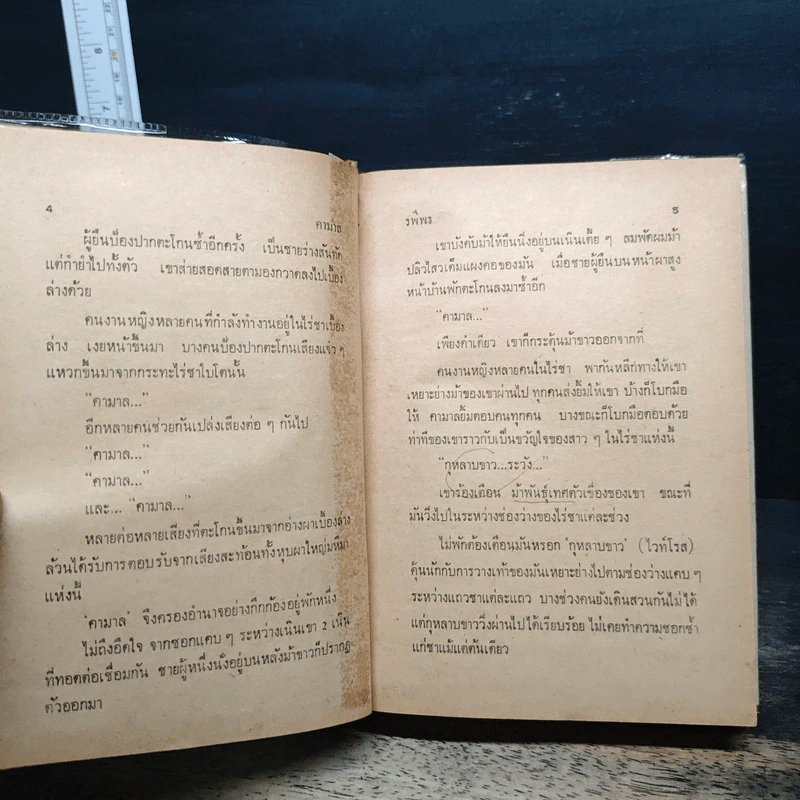 4
คามาล
ผู้ยืนป้องปากตะโกนซ้ำอีกครั้ง เป็นชายร่างสันทัด
แต่กำยำไปทั้งตัว เขาส่ายสอดสายตามองกวาดลงไปเบื้อง
ล่างด้วย
คนงานหญิงหลายคนที่กำลังทำงานอยู่ในไร่ชาเบื้อง
ล่าง เงยหน้าขึ้นมา บางคนป้องปากตะโกนเสียงแจ๋ว ๆ
แหวกขึ้นมาจากกระทะไร่ชาใบโตนั้น
“คามาล...”
อีกหลายคนช่วยกันเปล่งเสียงต่อ ๆ กันไป
“คามาล...”
“คามาล...”
และ... “คามาล...”
หลายต่อหลายเสียงที่ตะโกนขึ้นมาจากอ่างผาเบื้องล่าง
ล้วนได้รับการตอบรับจากเสียงสะท้อนทั้งหุบผาใหญ่มหึมา
แห่งนี้
‘คามาล’ จึงครองอำนาจอย่างกึกก้องอยู่พักหนึ่ง
ไม่ถึงอึดใจ จากซอกแคบ ๆ ระหว่างเนินเขา 2 เนิน
ที่ทอดต่อเชื่อมกัน ชายผู้หนึ่งนั่งอยู่บนหลังม้าขาวก็ปรากฏ
ตัวออกมา
รพีพร
5
เขาบังคับม้าให้ยืนนิ่งอยู่บนเนินเตี้ย ๆ ลมพัดผมม้า
ปลิวไสวเต็มแผงคอของมัน เมื่อชายผู้ยืนบนหน้าผาสูง
หน้าบ้านพักตะโกนลงมาซ้ำอีก
“คามาล...”
เพียงคำเดียว เขาก็กระตุ้นม้าขาวออกจากที่
คนงานหญิงหลายคนในไร่ชา พากันหลีกทางให้เขา
เหยาะย่างม้าของเขาผ่านไป ทุกคนส่งยิ้มให้เขา บ้างก็โบกมือ
ให้ คามาลยิ้มตอบคนทุกคน บางขณะก็โบกมือตอบด้วย
ท่าทีของเขาราวกับเป็นขวัญใจของสาว ๆ ในไร่ชาแห่งนี้
“กุหลาบขาว...ระวัง...”
เขาร้องเตือน ม้าพันธุ์เทศตัวเขื่องของเขา ขณะที่
มันวิ่งไปในระหว่างช่องว่างของไร่ชาแต่ละช่วง
ไม่พักต้องเตือนมันหรอก ‘กุหลาบขาว’ (ไวท์โรส)
คุ้นนักกับการวางเท้าของมันเหยาะย่างไปตามช่องว่างแคบ ๆ
ระหว่างแถวชาแต่ละแถว บางช่วงคนยังเดินสวนกันไม่ได้
แต่กุหลาบขาววิ่งผ่านไปได้เรียบร้อย ไม่เคยทำความชอกช้ำ
แก่ชาแม้แต่ต้นเดียว